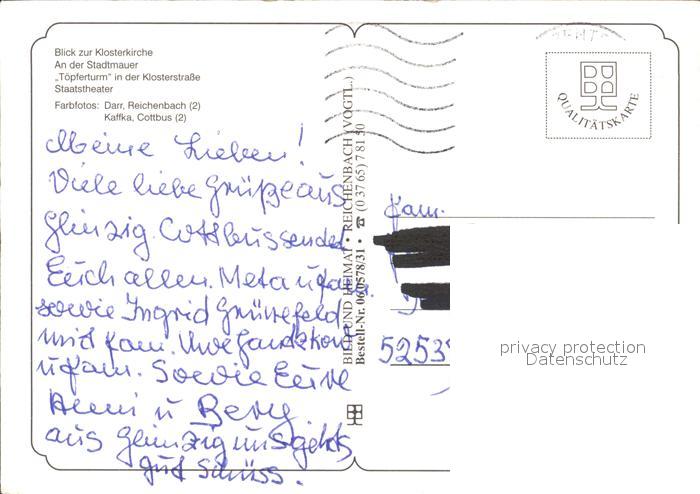 Blick zur Klosterkirche
An der Stadtmauer
„Töpferturm“ in der Klosterstraße
Staatstheater
Farbfotos: Darr, Reichenbach (2)
Kaffka, Cottbus (2)
Meine Lieben!
Viele liebe Grüße aus
Glinzig. Cottbus sendet
Euch allen. Meta u fam.
sowie Ingrid
mit fam. Uwe
u fam. Sowie Eure
u
aus Glinzig uns gehts
gut
BILD UND HEIMAT • REICHENBACH (VOGTL.)
Bestell-Nr. 06 0578/31 • ☎ (0 37 65) 7 81 50
QUALITÄTSKARTE
Fam.
5253
privacy protection
Datenschutz